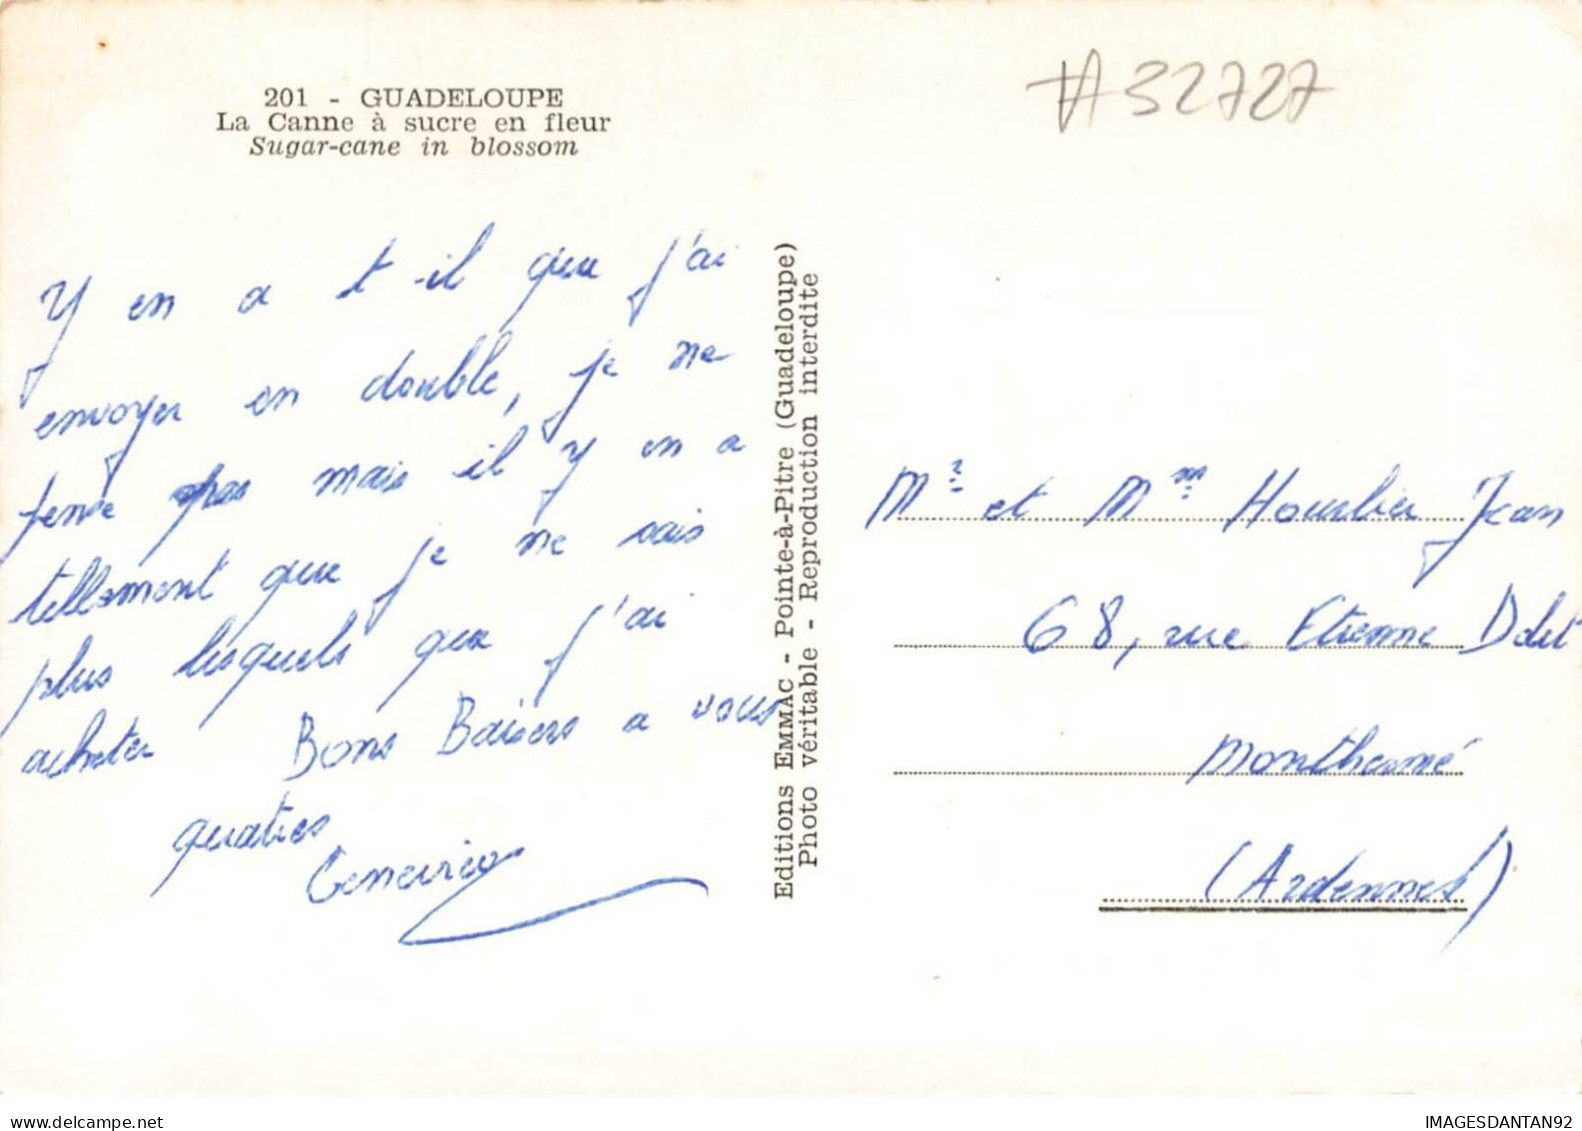 201 - GUADELOUPE
La Canne à sucre en fleur
Sugar-cane in blossom
#32727
Y en a t-il que j'ai
envoyer en double, je ne
pense pas mais il y en a
tellement que je ne sais
plus lesquels que j'ai
acheter Bons Baisers a vous
quatres
Genevieve
Editions EMMAC - Pointe-à-Pitre (Guadeloupe)
Photo véritable - Reproduction interdite
Mr et Mme Hourlier Jean
68, rue Etienne Dolet
Monthermé
(Ardennes)
www.delcampe.net
IMAGESDANTAN92